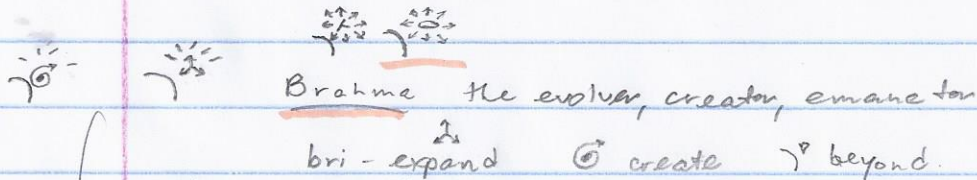 Brahma the evolver, creator, emanator
bri - expand create beyond.